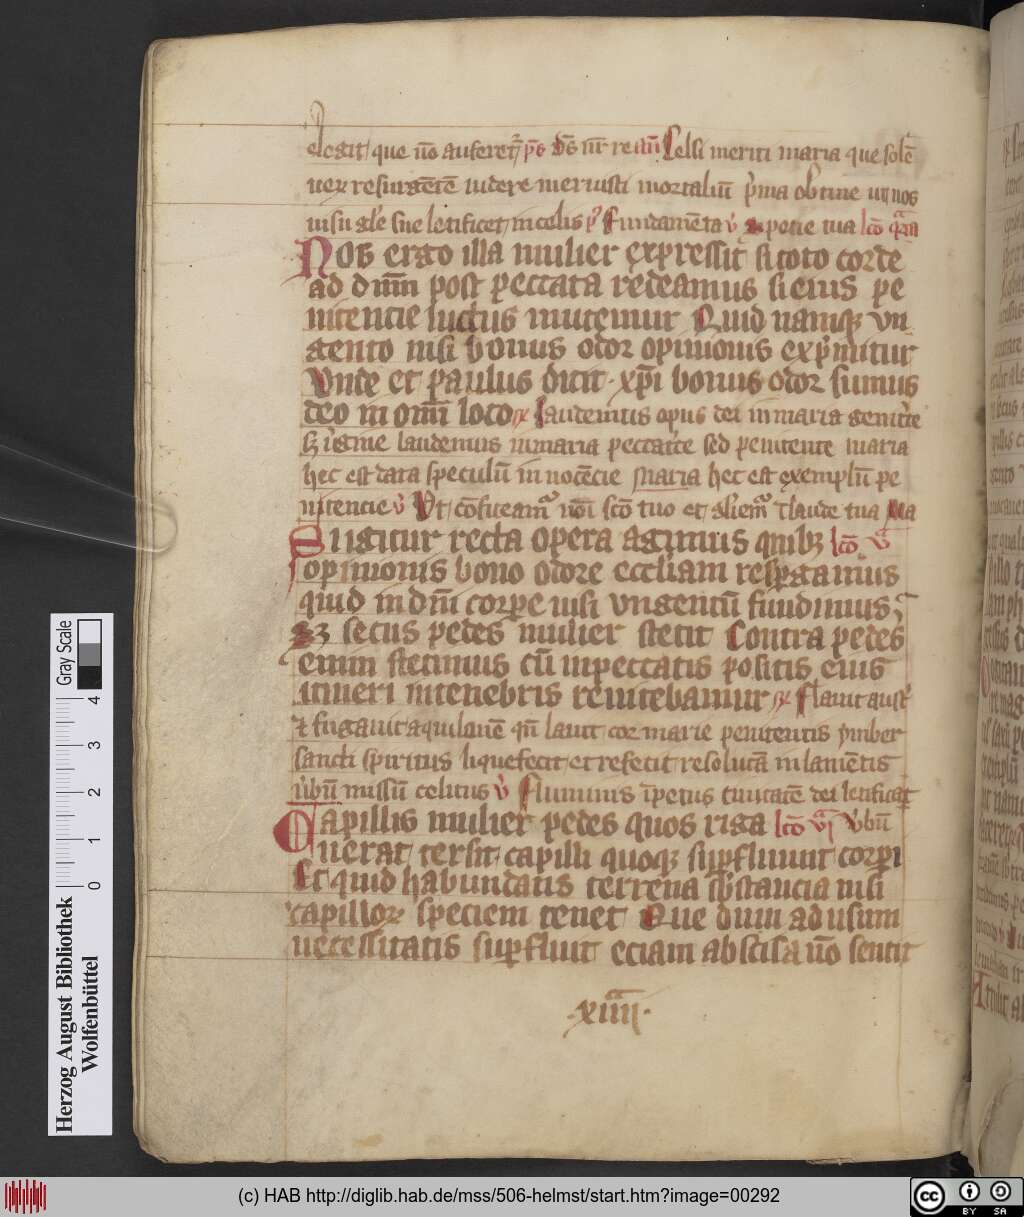 elegit que nō auferet͛ p̄s Ds̄ nr̄ re añ Celsi meriti maria que solē
uerꝝ resurgētē uidere meruisti mortaliū p̾ma obtine ut nos
uisu gl̄e sue letificet in celis p͛ Fundamēta v̾ Specie tua lcō q̄rta
Nos ergo illa mulier expressit si toto corde
ad dn̄m post peccata redeamus si eius pe
nitencie luctus imitemur Quid namqꝫ un
gento nisi bonus odor opinionis exp̾mitur
Vnde et paulus dicit xp̄i bonus odor sumus
deo in om̄i loco ꝶ Laudemus opus dei in maria genit͛ce
sꝫ u͛gine laudemus in maria peccat͛ce sed penitente maria
hec est data speculū in nocēcie maria hec est exemplū pe
nitencie v̾ Vt cōfiteam͛ noī scō tuo et gliem͛ ī laude tua
Si igitur recta opera agimus quibꝫ lcō v͛
opinionis bono odore eccliam respgamus
quid in dn̄i corpe nisi ungentū fundimus
Sꝫ secus pedes mulier stetit Contra pedes
enim stetimus cū in peccatis positis eius
itineri in tenebris renitebamur ꝶ Flauit aust͛
et fugauit aquilonē qn̄ lauit cor marie penitentis ymber
sancti spiritus liquefecit et refecit resolucā in lamētis
u͛bū missū celitus v̾ Fluminis īpetus ciuitatē dei letificat
Capillis mulier pedes quos riga lcō vi u͛bū
uerat tersit capilli quoqꝫ supfluunt corpi
Et quid habundatis terrena sbstancia nisi
capilloꝝ speciem tenet Que dum ad usum
necessitatis supfluit eciam abscisa nō sentit
·xiiii·
Herzog August Bibliothek
Wolfenbüttel
0 1 2 3 4
Gray Scale
(c) HAB http://diglib.hab.de/mss/506-helmst/start.htm?image=00292
cc BY SA